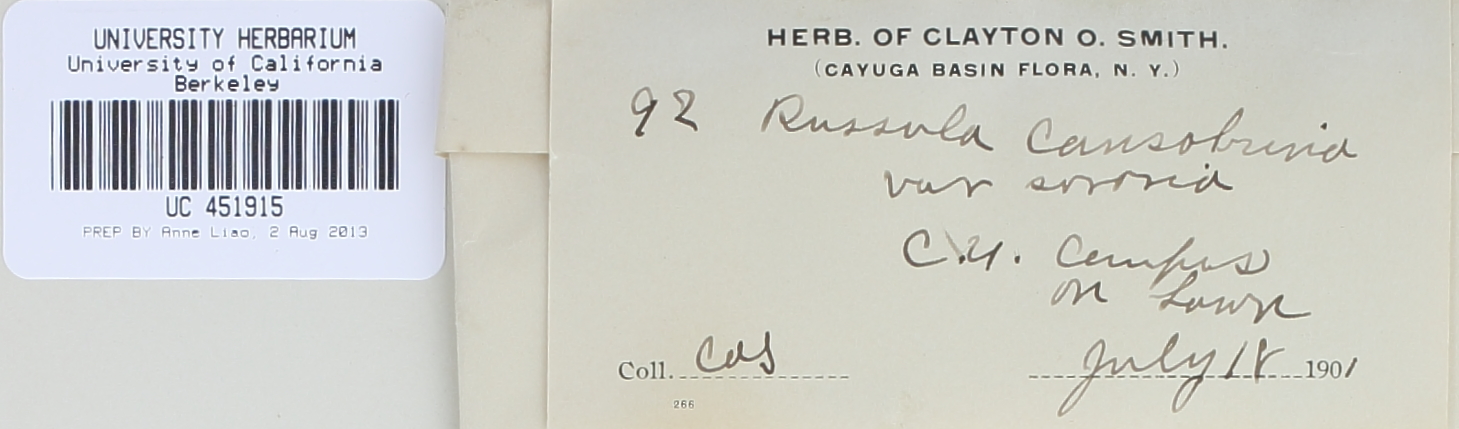 UNIVERSITY HERBARIUM
University of California
Berkeley
UC 451915
PREP BY Anne Liao, 2 Aug 2013
HERB. OF CLAYTON O. SMITH.
(CAYUGA BASIN FLORA, N. Y.)
92 Russula Consobrina
var sororia
C.U. Campus
on Lawn
Coll. COS July 18 1901
266